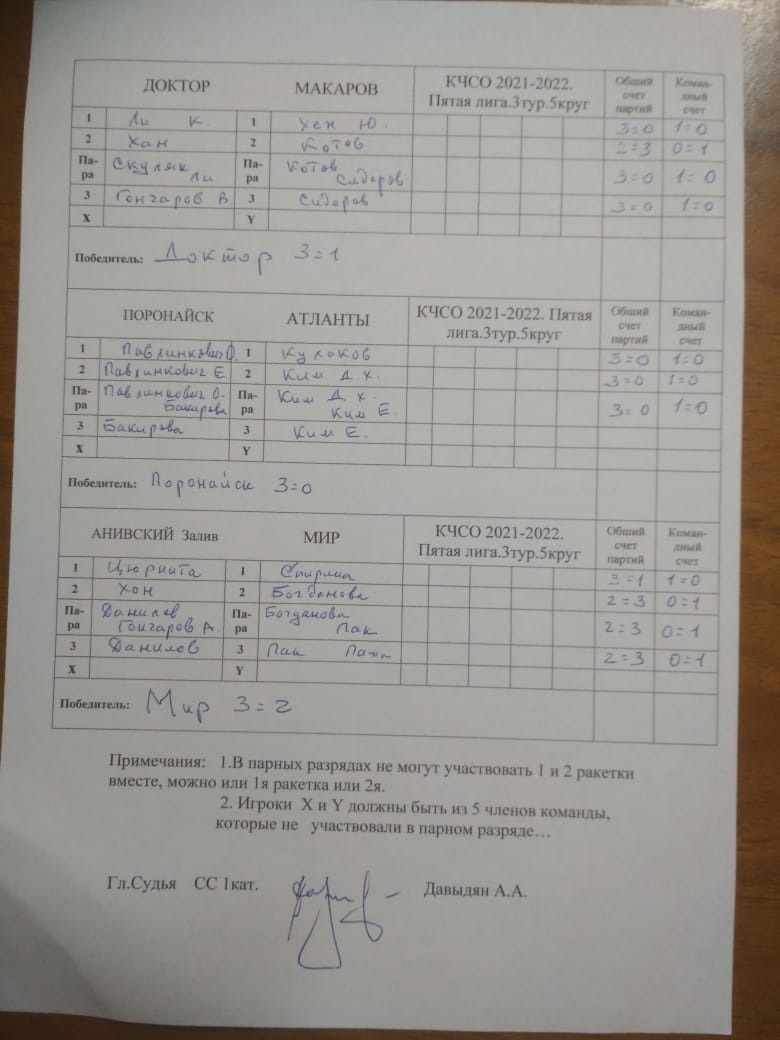 ДОКТОР МАКАРОВ КЧСО 2021-2022. Пятая лига.3тур.5круг Общий счет партий Коман-дный счет
1 Ли К. 1 Хен Ю. 3=0 1=0
2 Хан 2 Котов 2=3 0=1
Па-ра Скуляк Ли Па-ра Котов Сидоров 3=0 1=0
3 Гончаров В 3 Сидоров 3=0 1=0
X Y
Победитель: Доктор 3=1
ПОРОНАЙСК АТЛАНТЫ КЧСО 2021-2022. Пятая лига.3тур.5круг Общий счет партий Коман-дный счет
1 Павлинкович О. 1 Кулаков 3=0 1=0
2 Павлинкович Е. 2 Ким Д.Х. 3=0 1=0
Па-ра Павлинкович О. Бакирова Па-ра Ким Д.Х. Ким Е. 3=0 1=0
3 Бакирова 3 Ким Е.
X Y
Победитель: Поронайск 3=0
АНИВСКИЙ Залив МИР КЧСО 2021-2022. Пятая лига.3тур.5круг Общий счет партий Коман-дный счет
1 1 3=1 1=0
2 Хон 2 Богданова 2=3 0=1
Па-ра Данилов Гончаров А. Па-ра Богданова Пак 2=3 0=1
3 Данилов 3 Пак 2=3 0=1
X Y
Победитель: Мир 3=2
Примечания: 1.В парных разрядах не могут участвовать 1 и 2 ракетки
вместе, можно или 1я ракетка или 2я.
2. Игроки X и Y должны быть из 5 членов команды,
которые не участвовали в парном разряде…
Гл.Судья СС 1кат. Давыдян А.А.